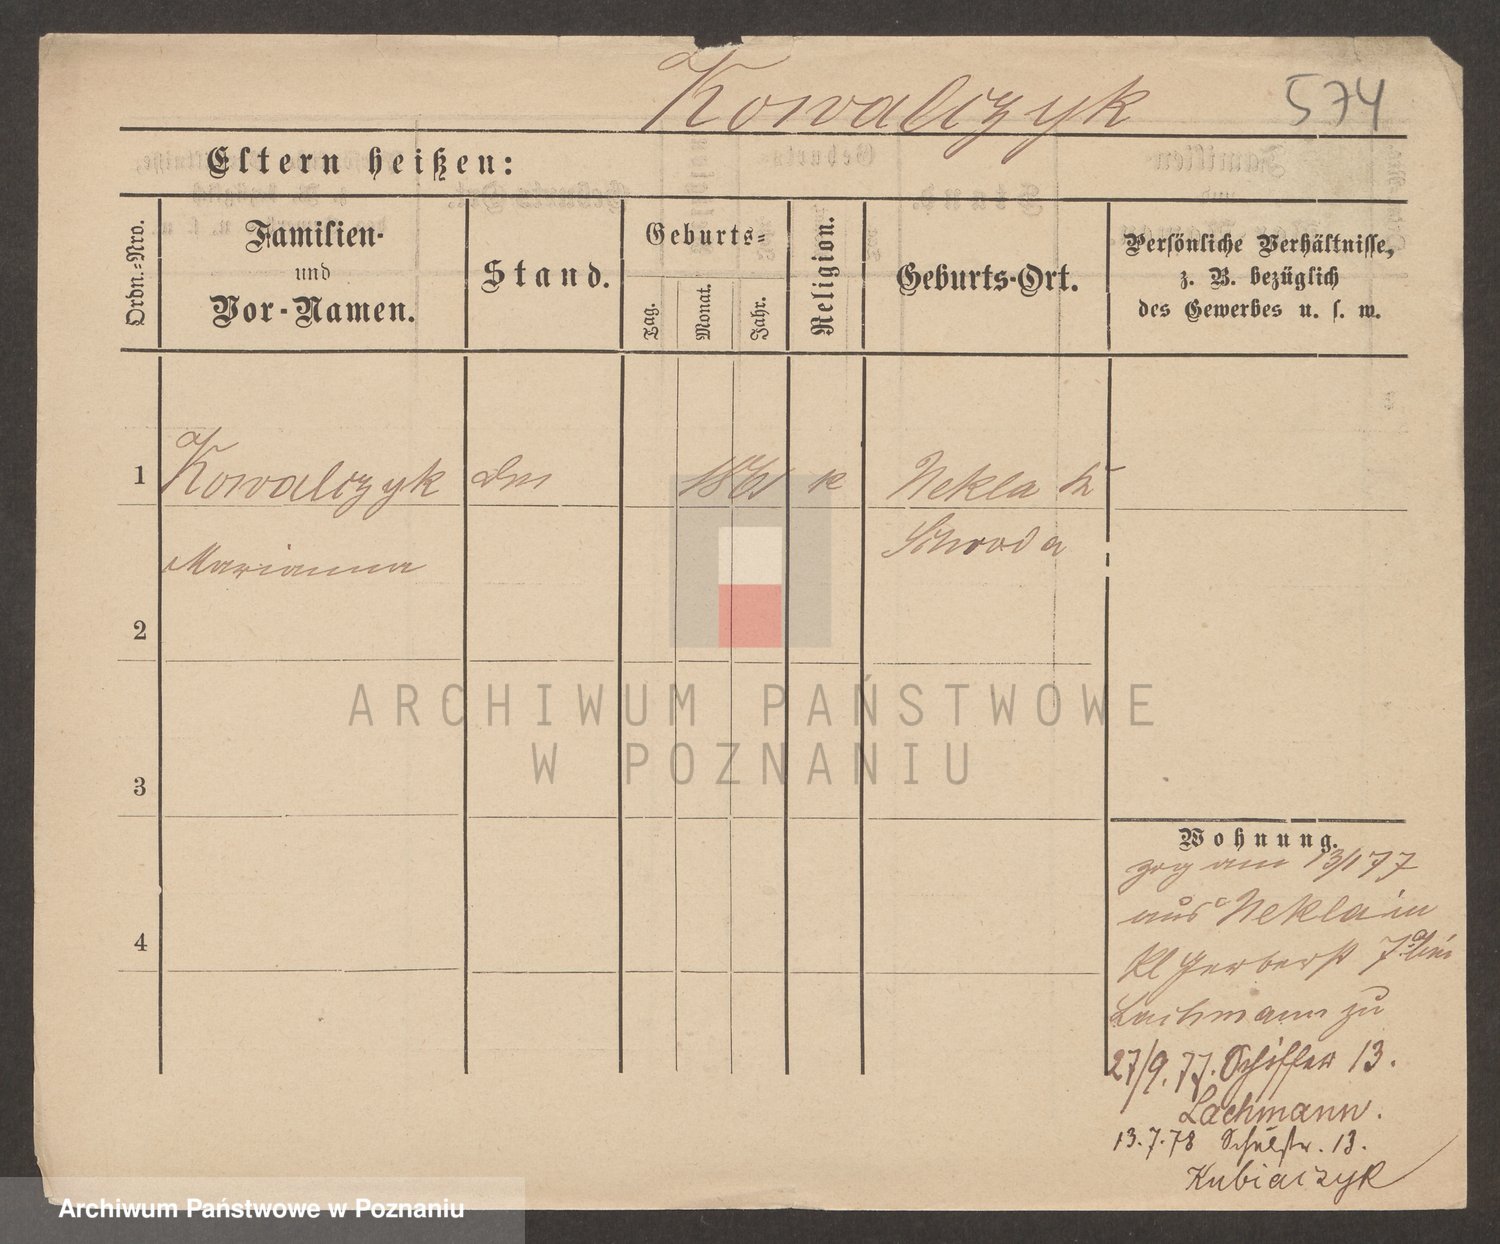 Kowalczyk
574
Eltern heißen:
Ordn.-Nro.
Familien-
und
Vor-Namen.
Stand.
Geburts-
Tag.
Monat.
Jahr.
Religion.
Geburts-Ort.
Persönliche Verhältnisse,
z. B. bezüglich
des Gewerbes u. s. w.
1 Kowalczyk 1861 k Nekla Kr
Marianna Schroda
2
3
4
ARCHIWUM PAŃSTWOWE
W POZNANIU
Wohnung.
zog am 13/1 77
aus Nekla in
Kl Gerberst 7
Lachmann zu
27/9. 77. Schiffer 13.
Lachmann.
13.7.78 Schulstr. 13.
Kubiaczyk
Archiwum Państwowe w Poznaniu